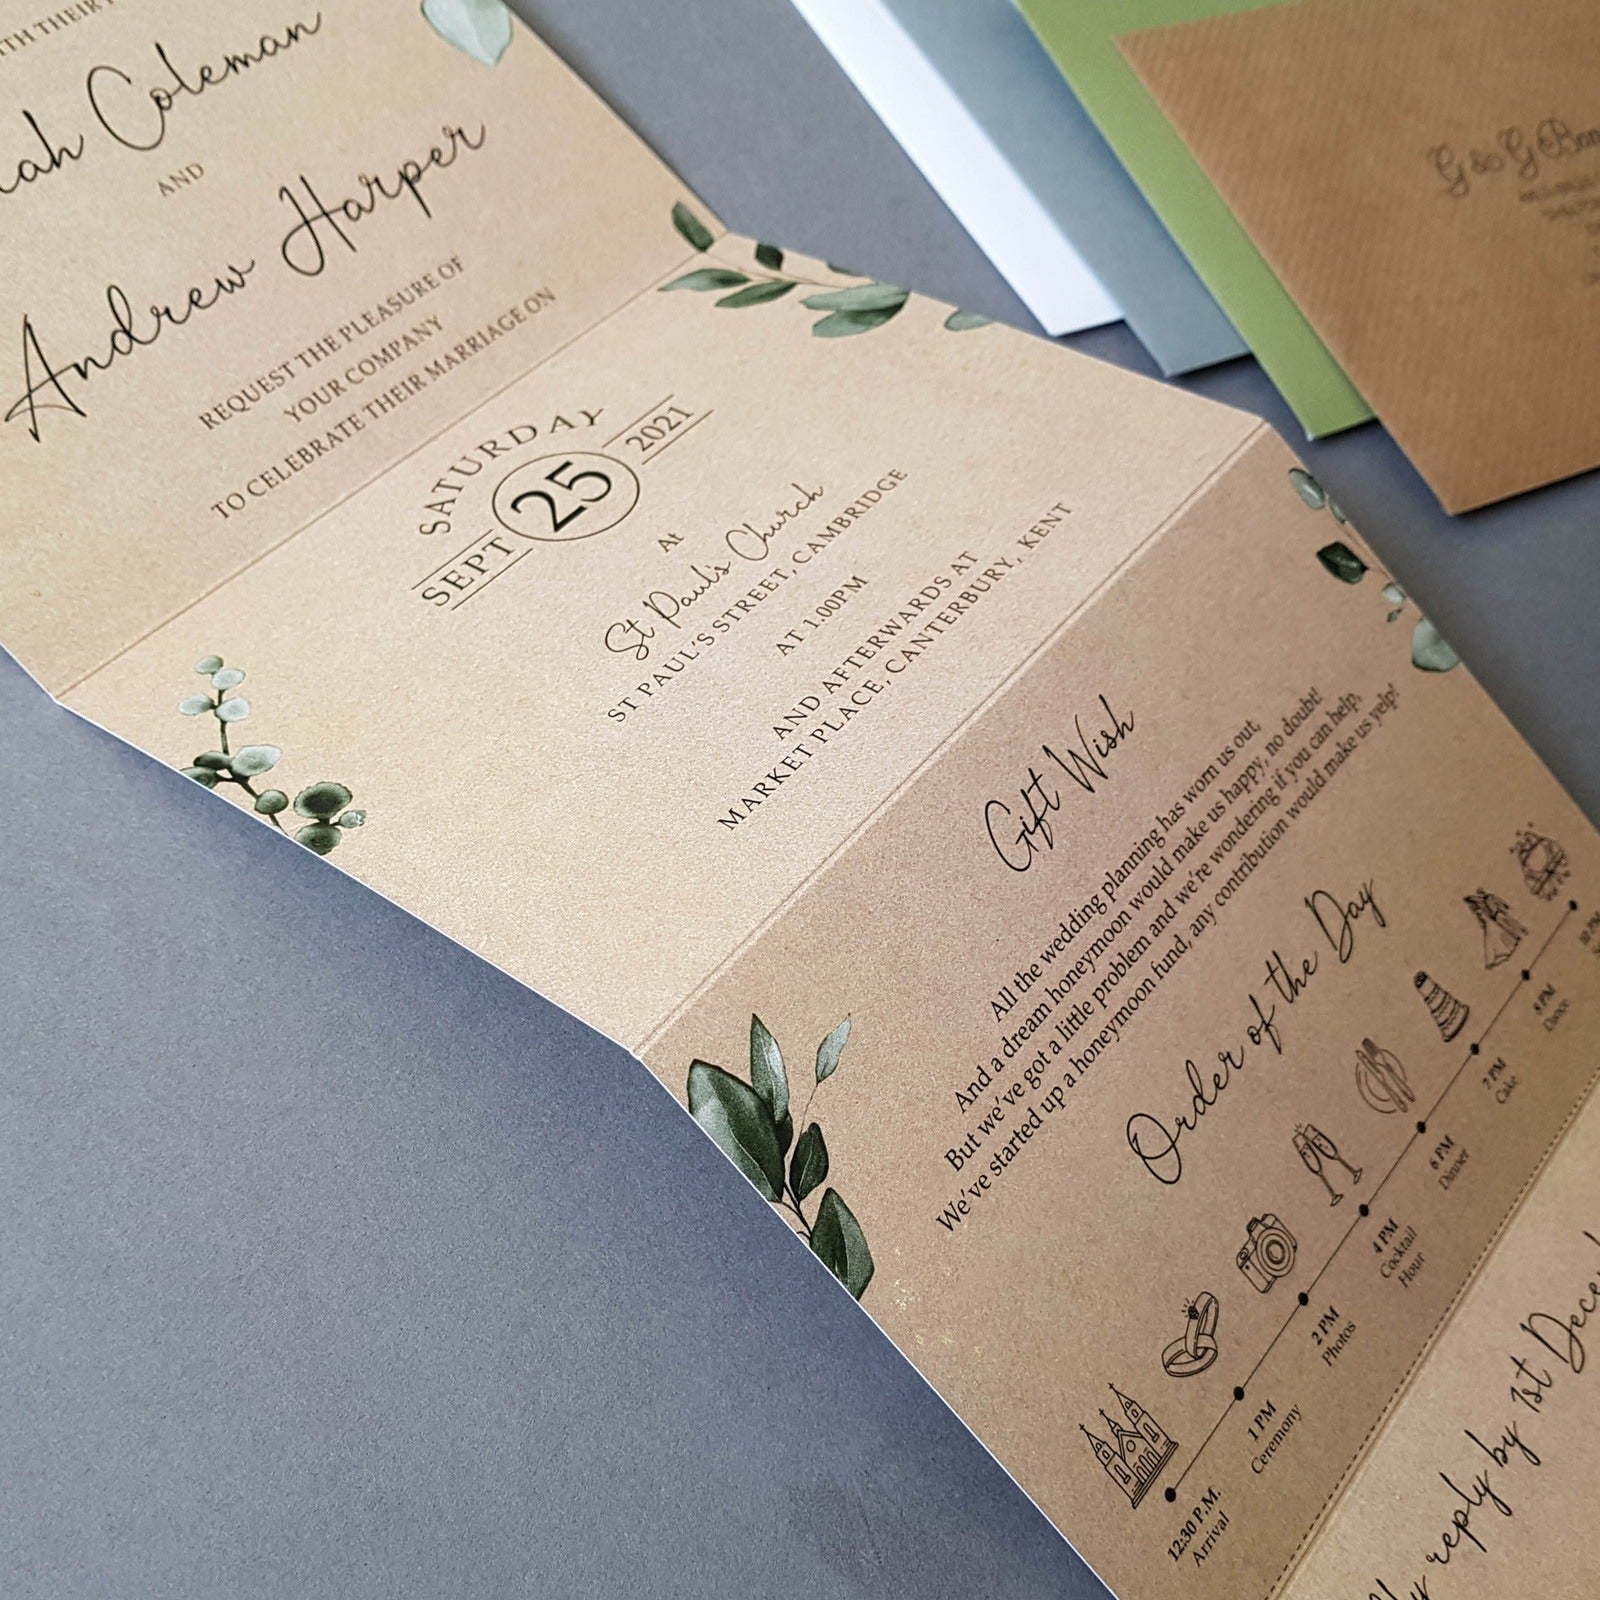 WITH THEIR
Coleman
AND
Andrew Harper
REQUEST THE PLEASURE OF
YOUR COMPANY
TO CELEBRATE THEIR MARRIAGE ON
SATURDAY
SEPT 25 2021
At
St Paul's Church
ST PAUL'S STREET, CAMBRIDGE
AT 1.00PM
AND AFTERWARDS AT
MARKET PLACE, CANTERBURY, KENT
Gift Wish
All the wedding planning has worn us out,
And a dream honeymoon would make us happy, no doubt!
But we've got a little problem and we're wondering if you can help,
We've started up a honeymoon fund, any contribution would make us yelp!
Order of the Day
12:30 P.M.
Arrival
1 PM
Ceremony
2 PM
Photos
4 PM
Cocktail
Hour
6 PM
Dinner
7 PM
Cake
8 PM
Dance
10 PM
reply by 1st Dece
G & G